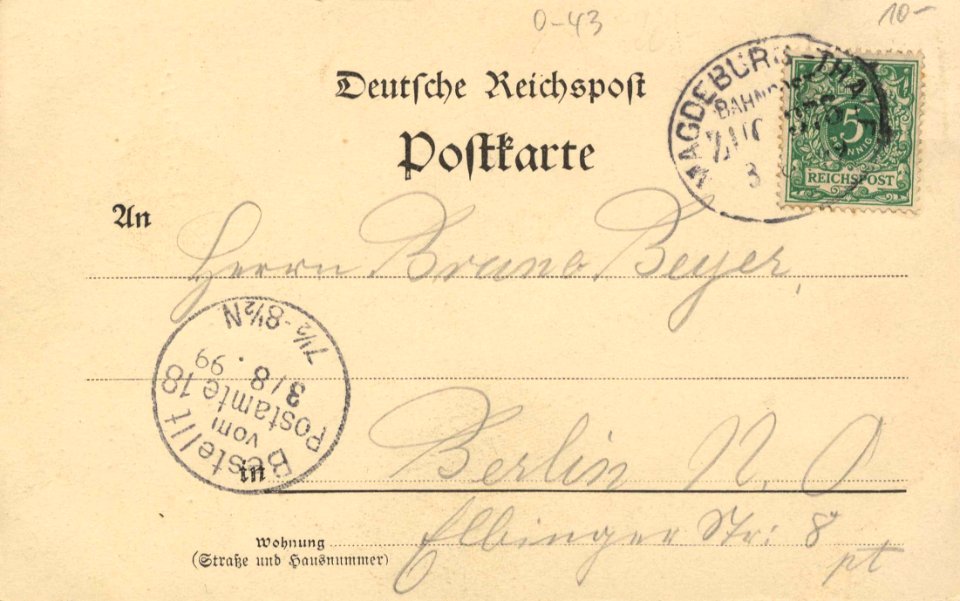 0-43
10-
Deutsche Reichspost
Postkarte
MAGDEBURG-THA
BAHNPOST
ZUG
3
5
PFENNIG
REICHSPOST
An
Herrn Bruno Beyer,
Bestellt
vom
Postamte 18
3/8.99
7½-8½N
in
Berlin N. O
Wohnung
(Straße und Hausnummer)
Elbinger Str: 8
pt